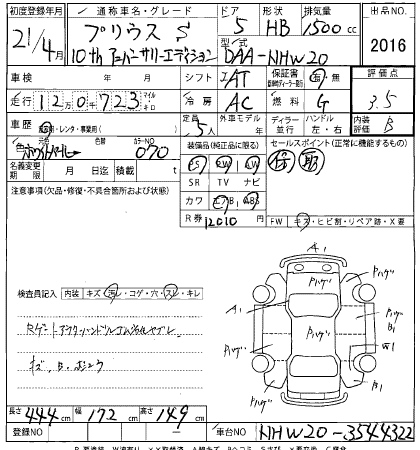 初度登録年月 通称車名・グレード ドア 形状 排気量 出品NO
21/4月 プリウス S 5 HB 1500cc 2016
10th アニバーサリーエディション 型式 DAA-NHW20
車検 年 月 シフト AT 保証書 有・無 評価点
走行 12万0千723 マイル キロ 冷房 AC 燃料 G 3.5
車歴 自家用・レンタ・事業用( ) 定員 5人 外車モデル 年 ディーラー 並行 ハンドル 左・右 内装 B
色 元色 色替 カラーNO 070 装備品(純正品に限る) セールスポイント(正常に機能するもの)
PS PW AW 保 取
名義変更期限 月 日迄 積載 t SR TV ナビ
注意事項(欠品・修復・不具合箇所および状態) カワ エアB ABS
R券 12010 円 FW キズ・ヒビ割・リペア跡・X要
A1
Pハゲ Pハゲ
検査員記入 内装 キズ・汚レ・コゲ・穴・スレ・キレ A1 Pハゲ
Pハゲ B1
Rゲートアウターハンドルゴム劣化ヤブレ
W1
キズ、B・ボコウ Pハゲ Pハゲ B1
長さ 444cm 幅 172cm 高さ 149cm
登録NO 車台NO NHW20-3544322